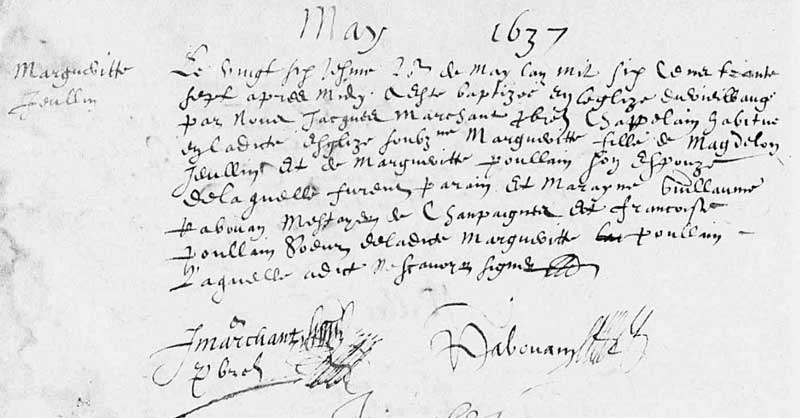 May 1637
Margueritte
Jeullin
Le vingt sixiesme Jor de May lan mil six Cens trante
sept apres Midy. A este baptizee en leglize du vieilbaug
par Nous Jacques Marchant pbre Chappelain habitue
en ladicte esglize soubzne Margueritte fille de Magdelon
Jeullin Et de Margueritte poullain son Espouze
de laquelle furent parain Et Marayne Guillaume
Rabouan Mestayer de Chanpaigne Et francoise
poullain Soeur de ladicte Margueritte poullain
Laquelle a dict Ne scavoir signer
J Marchant Rabouan
pbre